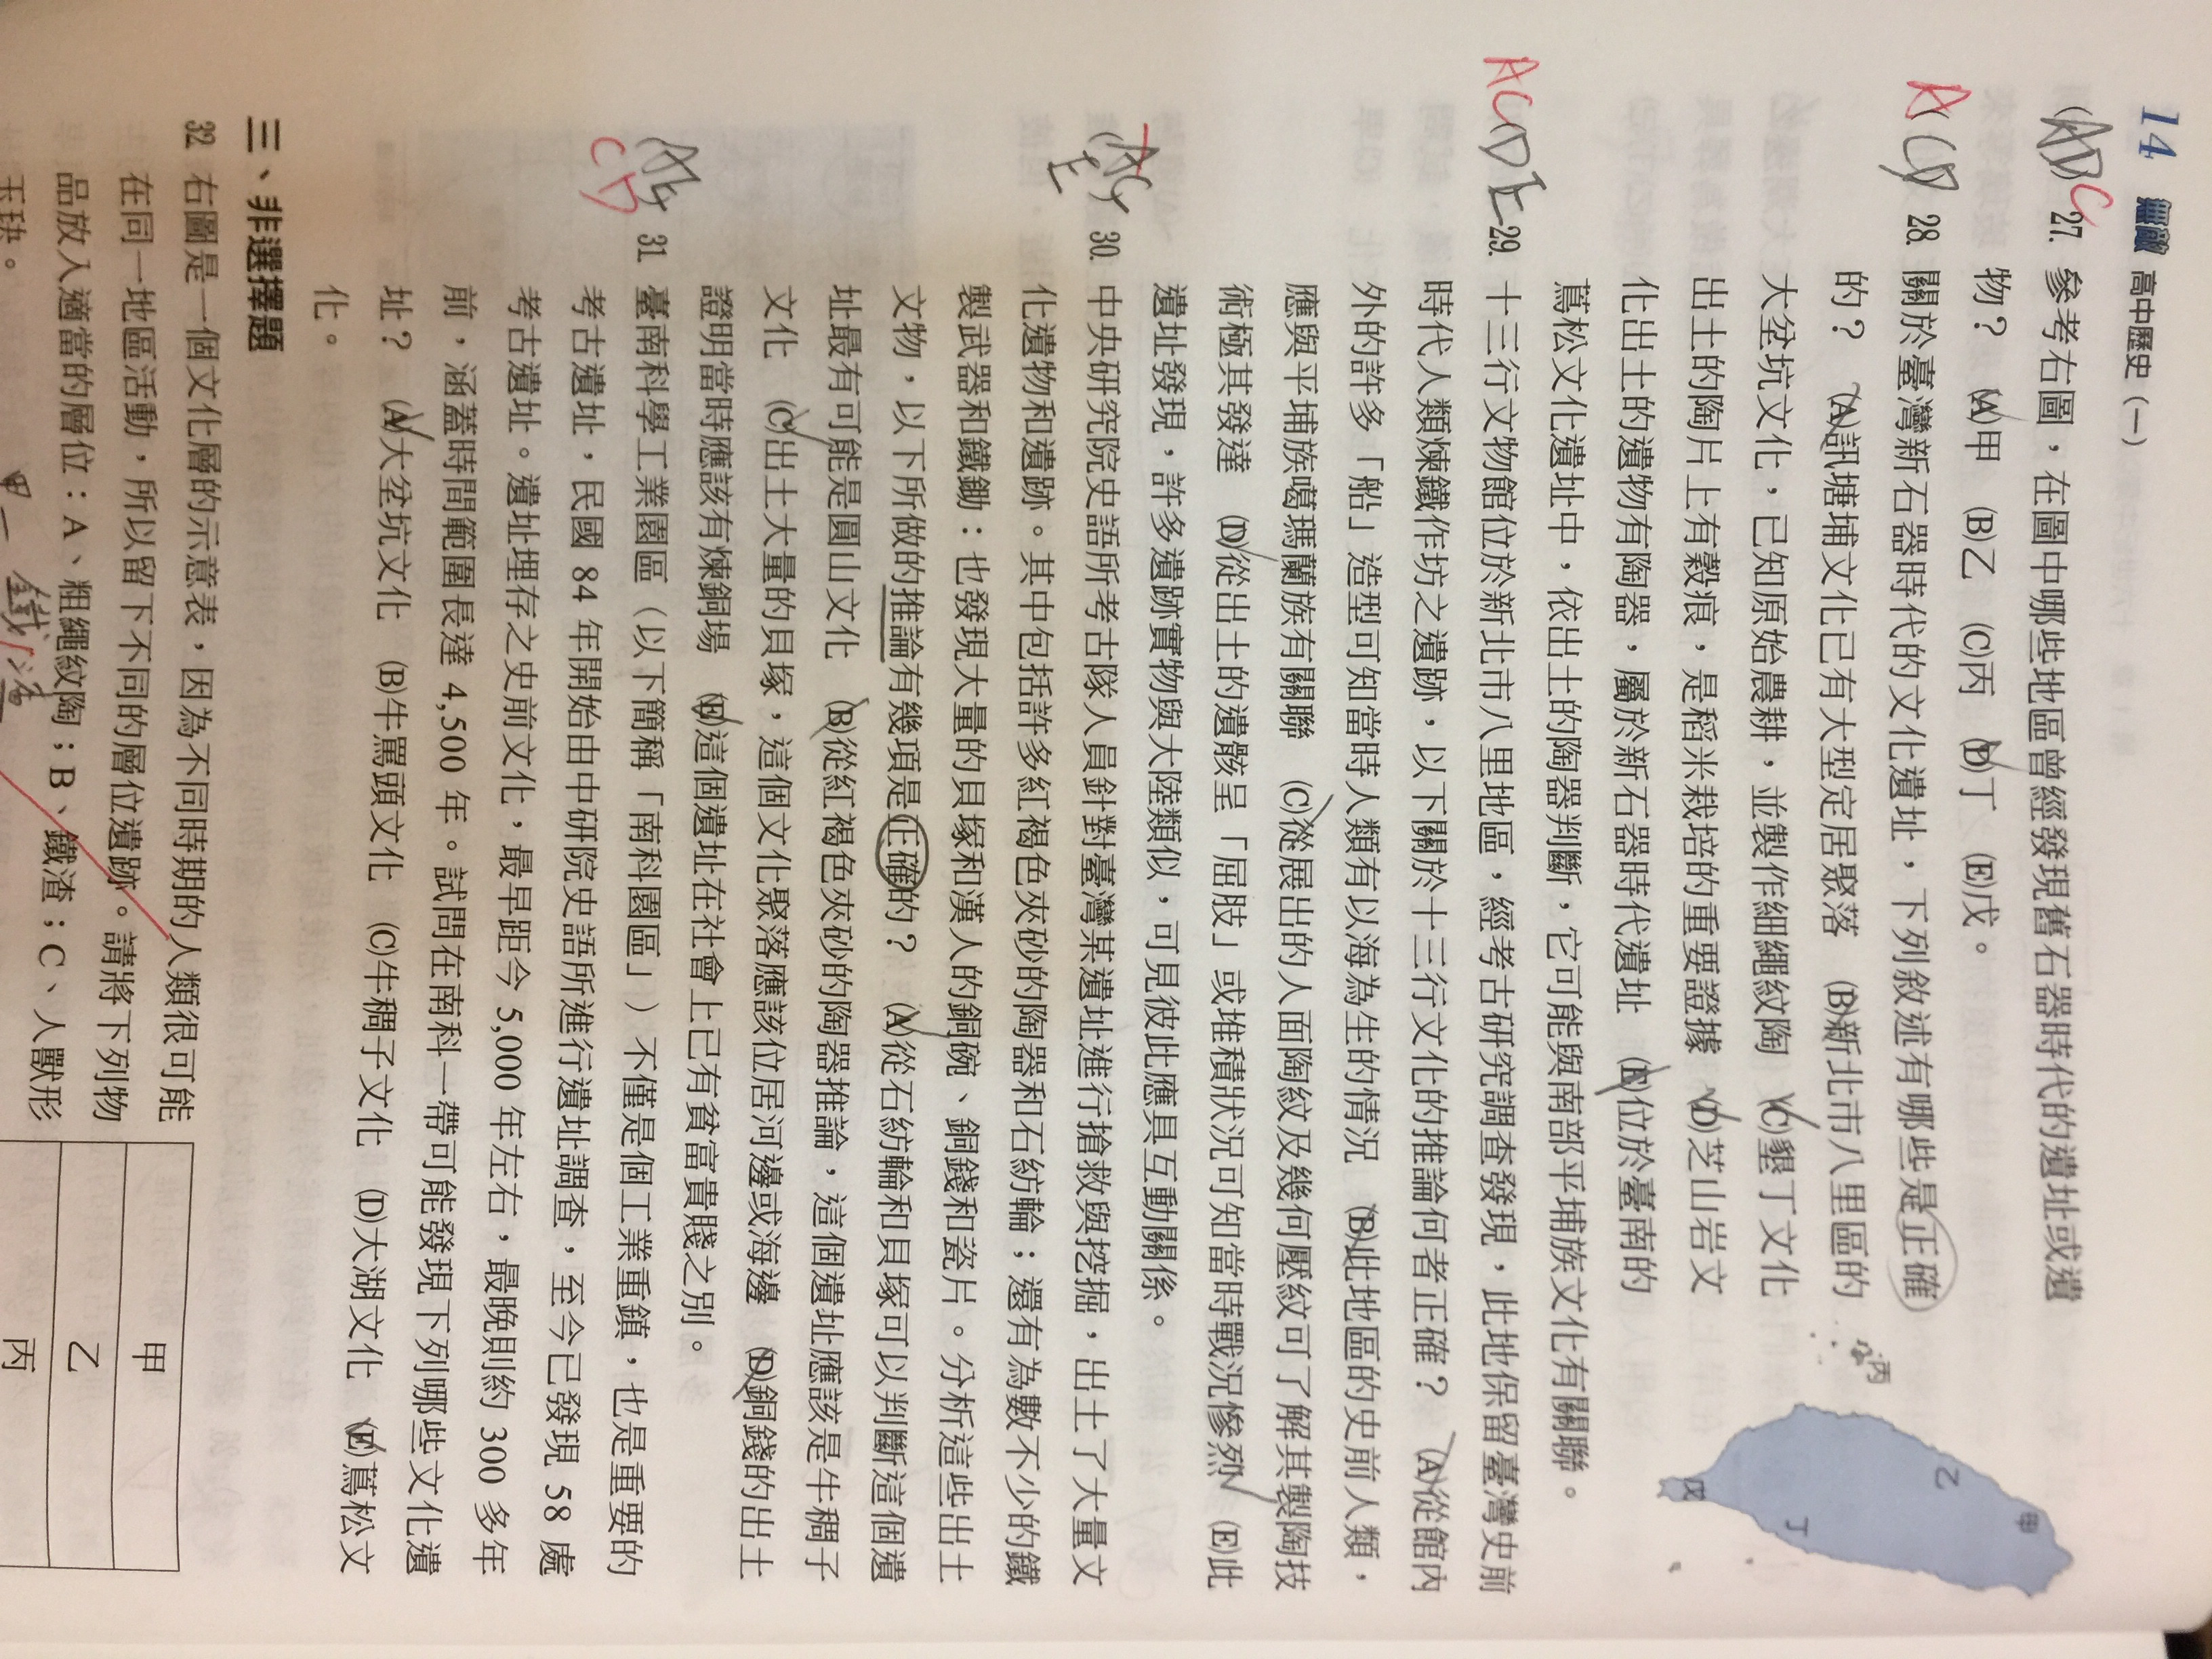 14 無敵 高中歷史（一）
(ADC 27. 參考右圖，在圖中哪些地區曾經發現舊石器時代的遺址或遺
物？ (A)甲 (B)乙 (C)丙 (D)丁 (E)戊。
A(CD 28. 關於臺灣新石器時代的文化遺址，下列敘述有哪些是正確
的？ (A)訊塘埔文化已有大型定居聚落 (B)新北市八里區的
大坌坑文化，已知原始農耕，並製作細繩紋陶 (C)墾丁文化
出土的陶片上有穀痕，是稻米栽培的重要證據 (D)芝山岩文
化出土的遺物有陶器，屬於新石器時代遺址 (E)位於臺南的
蔦松文化遺址中，依出土的陶器判斷，它可能與南部平埔族文化有關聯。
丙
甲
乙
丁
戊
AC(DE 29. 十三行文物館位於新北市八里地區，經考古研究調查發現，此地保留臺灣史前
時代人類煉鐵作坊之遺跡，以下關於十三行文化的推論何者正確？ (A)從館內
外的許多「船」造型可知當時人類有以海為生的情況 (B)此地區的史前人類，
應與平埔族噶瑪蘭族有關聯 (C)從展出的人面陶紋及幾何壓紋可了解其製陶技
術極其發達 (D)從出土的遺骸呈「屈肢」或堆積狀況可知當時戰況慘烈 (E)此
遺址發現，許多遺跡實物與大陸類似，可見彼此應具互動關係。
(AC E 30. 中央研究院史語所考古隊人員針對臺灣某遺址進行搶救與挖掘，出土了大量文
化遺物和遺跡。其中包括許多紅褐色夾砂的陶器和石紡輪；還有為數不少的鐵
製武器和鐵鋤：也發現大量的貝塚和漢人的銅碗、銅錢和瓷片。分析這些出土
文物，以下所做的推論有幾項是正確的？ (A)從石紡輪和貝塚可以判斷這個遺
址最有可能是圓山文化 (B)從紅褐色夾砂的陶器推論，這個遺址應該是牛稠子
文化 (C)出土大量的貝塚，這個文化聚落應該位居河邊或海邊 (D)銅錢的出土
證明當時應該有煉銅場 (E)這個遺址在社會上已有貧富貴賤之別。
CD 31 臺南科學工業園區（以下簡稱「南科園區」）不僅是個工業重鎮，也是重要的
考古遺址，民國 84 年開始由中研院史語所進行遺址調查，至今已發現 58 處
考古遺址。遺址埋存之史前文化，最早距今 5,000 年左右，最晚則約 300 多年
前，涵蓋時間範圍長達 4,500 年。試問在南科一帶可能發現下列哪些文化遺
址？ (A)大坌坑文化 (B)牛罵頭文化 (C)牛稠子文化 (D)大湖文化 (E)蔦松文
化。
三、非選擇題
32 右圖是一個文化層的示意表，因為不同時期的人類很可能
在同一地區活動，所以留下不同的層位遺跡。請將下列物
品放入適當的層位：A、粗繩紋陶；B、鐵渣；C、人獸形
玉玦。
甲
乙
丙
甲－鐵渣